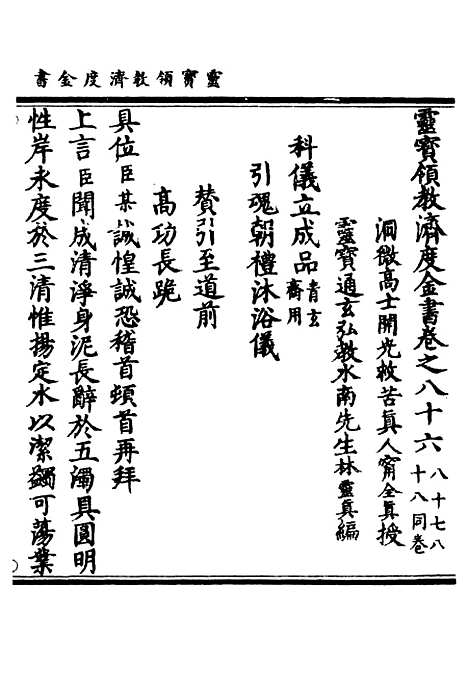 靈寶領教濟度金書
靈寶領教濟度金書卷之八十六八十七八十八同卷
洞微高士開光救苦眞人甯全眞授
靈寶通玄弘教水南先生林靈眞編
科儀立成品青玄齋用
引魂朝禮沐浴儀
贊引至道前
高功長跪
具位臣某誠惶誠恐稽首頓首再拜
上言臣聞成清淨身泥長辭於五濁具圓明
性岸永度於三清惟揚定水以潔蠲可蕩業